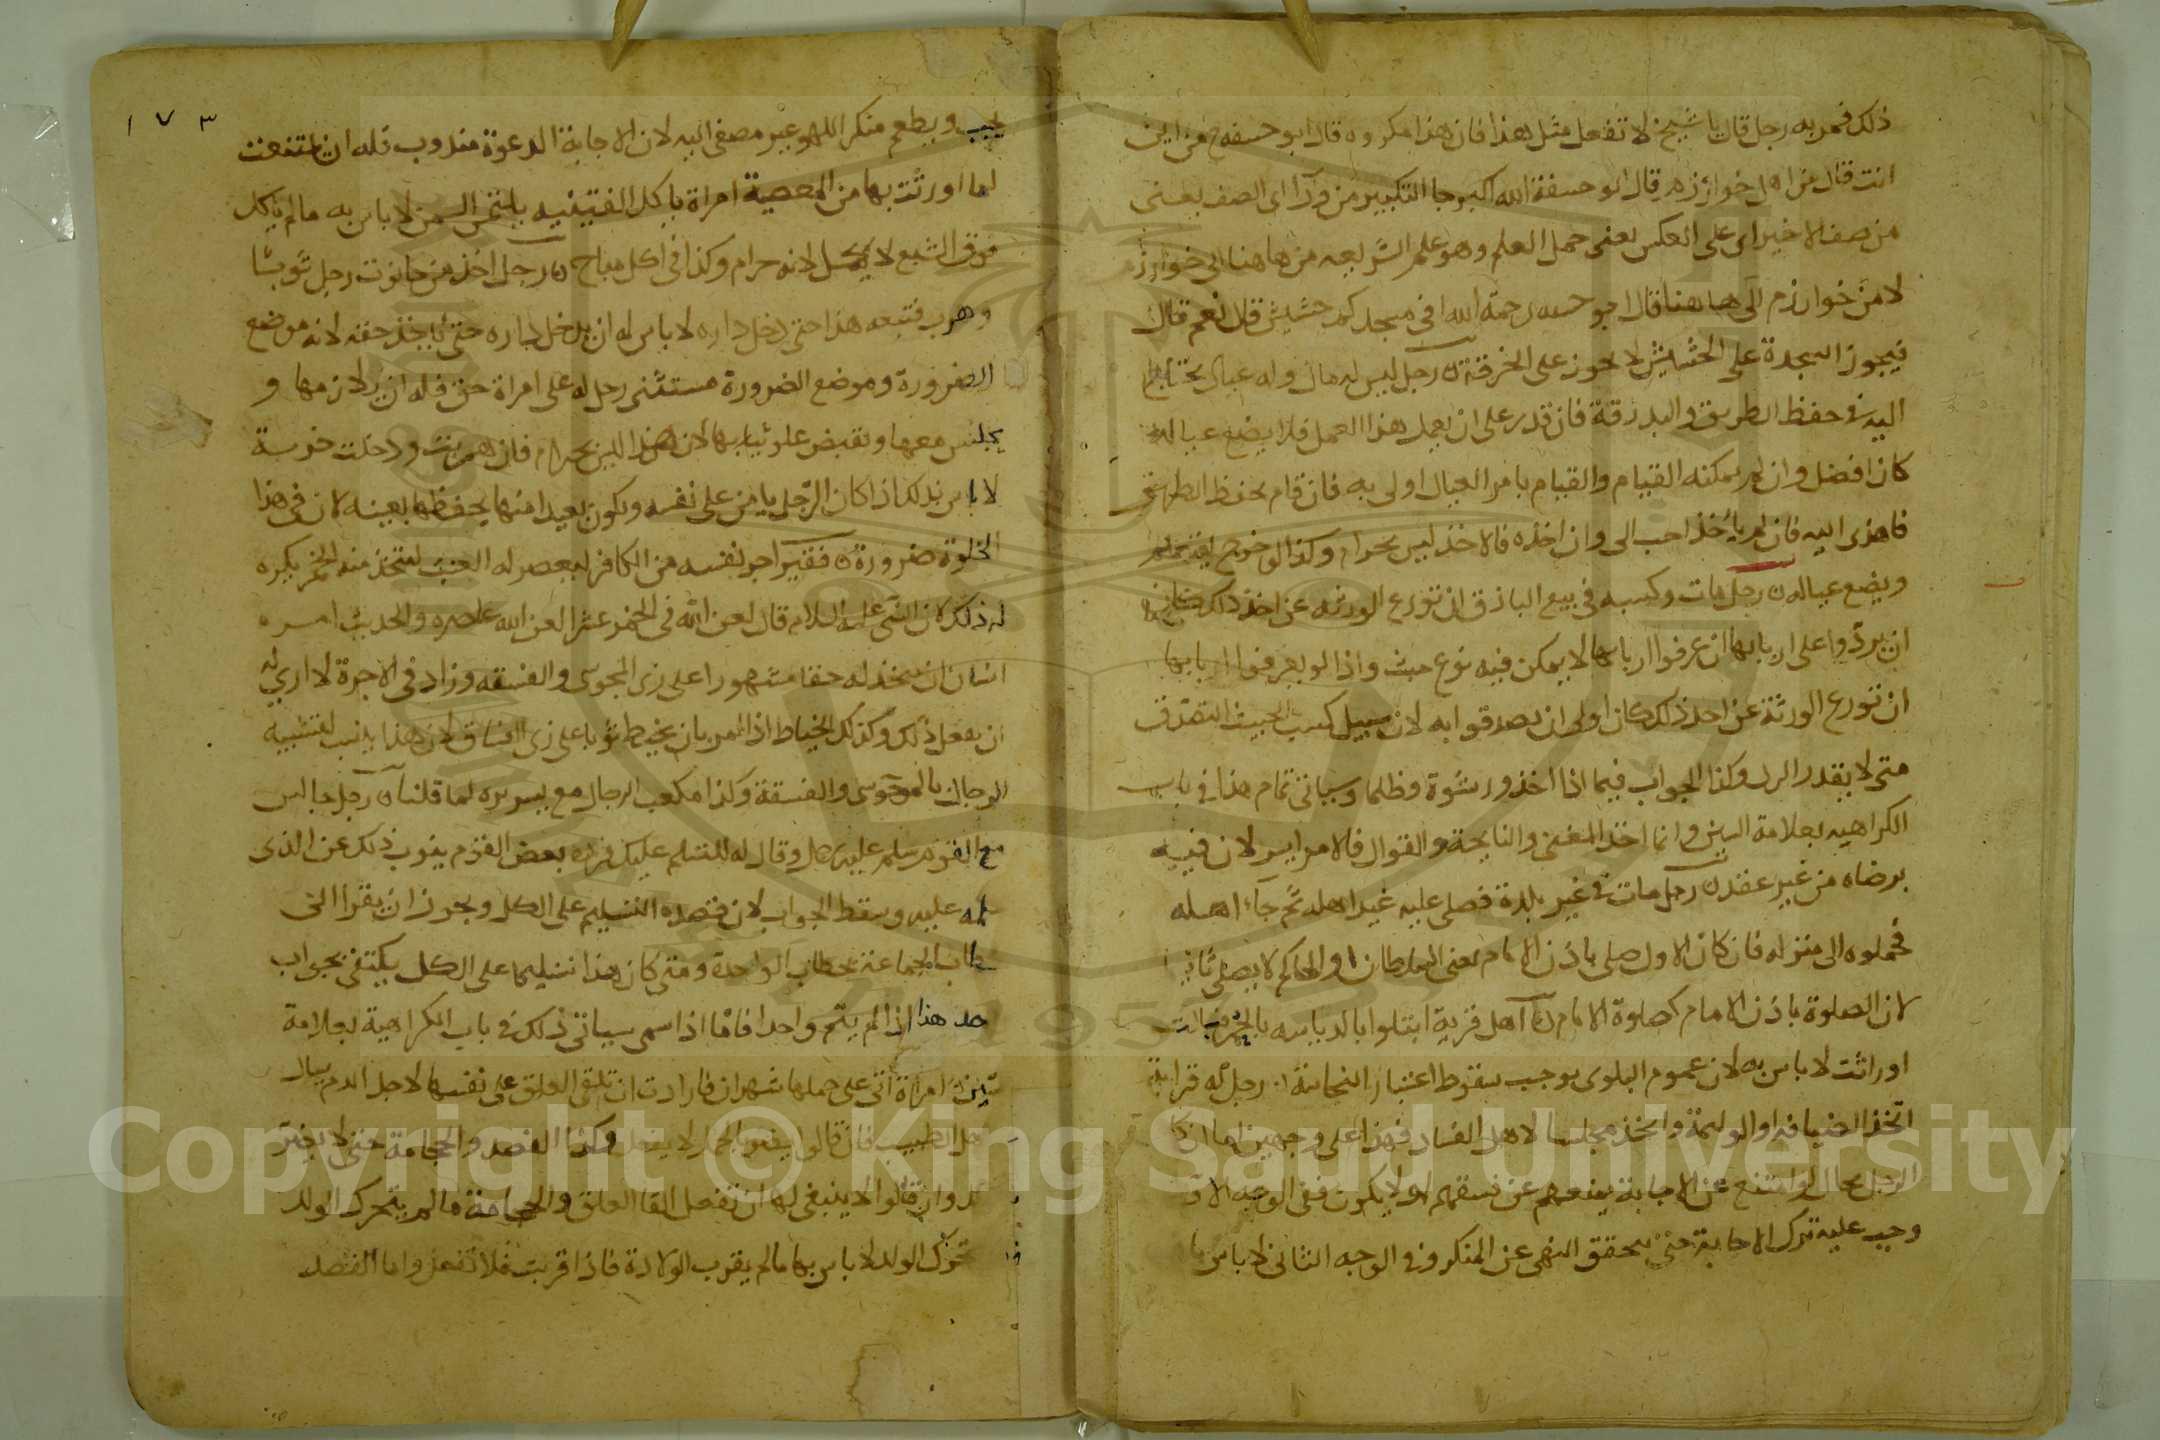 ذلك فمر به رجل قال يا شيخ لا تفعل مثل هذا فان هذا مكروه قال ابو حنيفة من اين
انت قال من اهل خوارزم قال ابو حنيفة الله اكبر جا التكبير من ورآ اى الصف يعنى
من صف الاخير اى على العكس يعنى حمل العلم وهو علم الشريعه من هاهنا الى خوارزم
لا من خوارزم الى هاهنا قال ابو حنيفه رحمة الله افى مسجدكم حشيش قال نعم قال
فيجوز السجدة على الحشيش لا يجوز على الخرقة ن رجل ليس له مال وله عيال يحتاج
اليه فى حفظ الطريق والبدرقة فان قدر على ان يعمل هذا العمل فلا يضع عياله
كان افضل وان لم يمكنه القيام والقيام بامر العيال اولى به فان قام بحفظ الطريق
فاهدى اليه فان لم يأخذ احب الى وان اخذه فالاخذ ليس بحرام وكذا لو خرج
ويضع عياله ن رجل مات وكسبه فى بيع الباذق ان تورع الورثه عن اخذ ذلك
ان يردوا على اربابها ان عرفوا اربابها لا يمكن فيه نوع خبث واذا لم يعرفوا اربابها
ان تورع الورثة عن اخذ ذلك كان اولى ان يصدقوا به لان سبيل كسب الخبيث التصدق
متى لا يقدر الرد وكذا الجواب فيما اذا اخذ رشوة وظلما وسياتى تمام هذا فى باب
الكراهيه بعلامة السين وانما اخذ المغنى والنايحة والقوال فالامر ايسر لان فيه
برضاه من غير عقد ن رجل مات فى غير بلدة فصلى عليه غير اهله ثم جآء اهله
فحملوه الى منزله فان كان الاول صلى باذن الامام يعنى السلطان او الحاكم لا يصلى ثانيا
لان الصلوة باذن الامام كصلوة الامام ن اهل قرية ابتلوا بالدياسه بالحمر فبالت
او راثت لا باس به لان عموم البلوى يوجب سقوط اعتبار النجاسة ن رجل له قرابة
اتخذ الضيافه او الوليمة واتخذ مجلسا لاهل الفساد فهذا على وجهين اما ان كان
الرجل بحال لو امتنع عن الاجابة يمنعهم عن فسقهم او لا يكون ففى الوجه الاول
وجب عليه ترك الاجابة حتى يتحقق النهى عن المنكر وفى الوجه الثانى لا باس بان
١٧٣
يجيب ويطعم منكر اللهو غير مصغى اليه لان الاجابة الدعوة مندوب فله ان
لما اورثت بها من المعصية امراة تاكل الفتيت يلتمس السمن لا باس به ما لم ياكل
فوق الشبع لا يحل لانه حرام وكذا فى اكل مباح ن رجل اخذ من حانوت رجل ثوبا
وهرب فتبعه هذا حتى دخل داره لا باس له ان يدخل داره حتى ياخذ حقه لانه موضع
الضرورة وموضع الضرورة مستثنى رجل له على امراة حق فله ان يلازمها و
يجلس معها ويقبض على ثيابها لان هذا ليس بحرام فان هربت ودخلت خربة
لا باس بذلك اذا كان الرجل يامن على نفسه ويكون بعيدا منها يحفظها بعينه لان فى هذا
الخلوة ضرورة ن فقير اجر نفسه من الكافر ليعصر له العنب ليتخذ منه الخمر يكره
له ذلك لان النبى عليه السلام قال لعن الله فى الخمر عشرا لعن الله عاصره والحديث امره
انسان ان يتخذ له خفا مشهورا على زى المجوسى والفسقه وزاد فى الاجرة لا ارى له
ان يفعل ذلك وكذلك الخياط اذا امر بان يخيط ثوبا على زى الفساق لان هذا سبب لتشبيه
الرجال بالمجوسى والفسقة وكذا مكعب الرجال مع بسريره لما قلنا ن رجل جالس
مع القوم سلم عليه رجل وقال له السلام عليك فرد بعض القوم ينوب ذلك عن الذى
سلم عليه ويسقط الجواب لان قصده التسليم على الكل ويجوز ان يقرا التى
خطاب الجماعة بخطاب الواحدة ومتى كان هذا تسليما على الكل يكتفى بجواب
واحد هذا اذا لم يسم واحدا فاما اذا سمى سياتى ذلك فى باب الكراهية بعلامة
السين امراة اتى على حملها شهران فارادت ان تلقى العلق على نفسها لاجل الدم يسال
اهل الطبيب فان قالوا يضر بالحمل لا يفعل وكذا الفصد والحجامة حتى لا يضر
بالولد وان قالوا لا ينبغى لها ان تفعل القا العلق والحجامة ما لم يتحرك الولد
تحرك الولد لا باس بها ما لم يقرب الولادة فاذا قربت فلا تفعل واما الفصد
Copyright © King Saud University